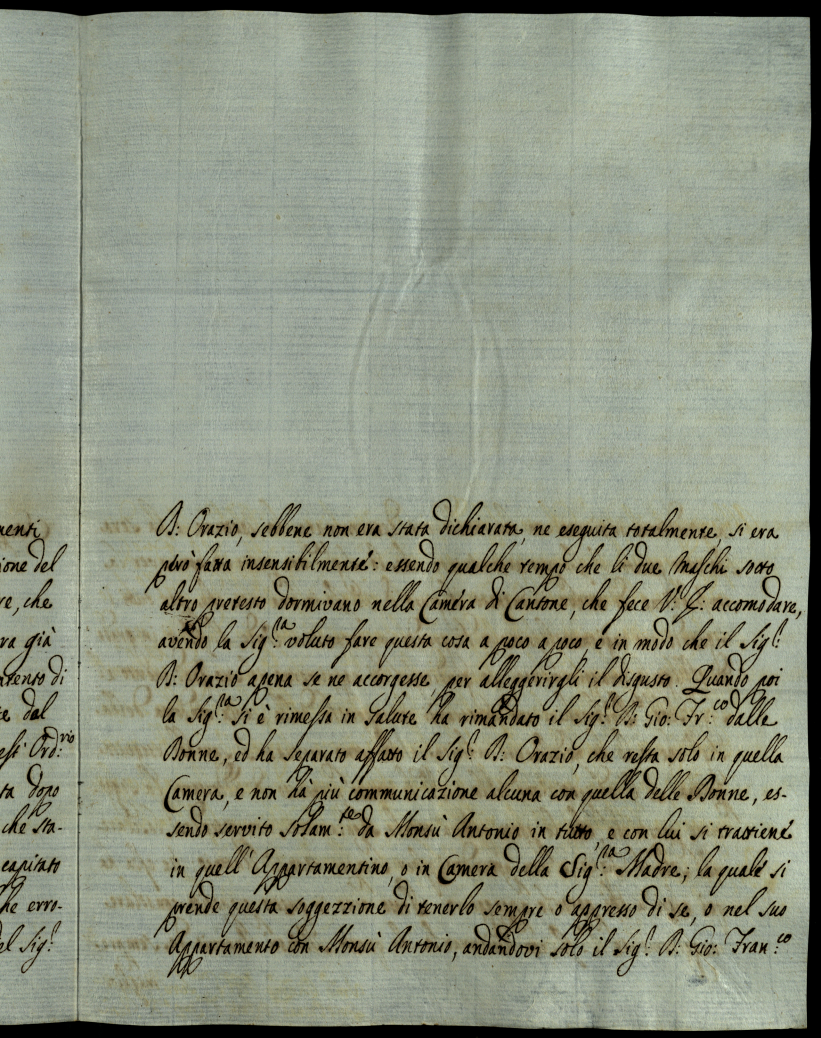 menti
ione del
re, che
ra già
te del
ta dopo
che sta-
capitato
he erro-
el Sig.r
B: Orazio, sebbene non era stata dichiarata, ne eseguita totalmente, si era
però fatta insensibilmente: essendo qualche tempo che li due Maschi sotto
altro pretesto dormivano nella Camera di Cantone, che fece V: accomodare,
avendo la Sig:ra voluto fare questa cosa a poco a poco, e in modo che il Sig:r
B: Orazio apena se ne accorgesse per alleggerirgli il disgusto. Quando poi
la Sig:ra si è rimessa in Salute ha rimandato il Sig:r B: Gio: Fr:co dalle
Bonne, ed ha separato affatto il Sig:r B: Orazio, che resta solo in quella
Camera, e non hà più communicazione alcuna con quella delle Bonne, es-
sendo servito Solam:te da Monsù Antonio in tutto, e con lui si trattiene
in quell'Appartamentino, o in Camera della Sig:ra Madre; la quale si
prende questa soggezzione di tenerlo sempre o appresso di se, o nel suo
Appartamento con Monsù Antonio, andandovi solo il Sig:r B: Gio: Fran:co